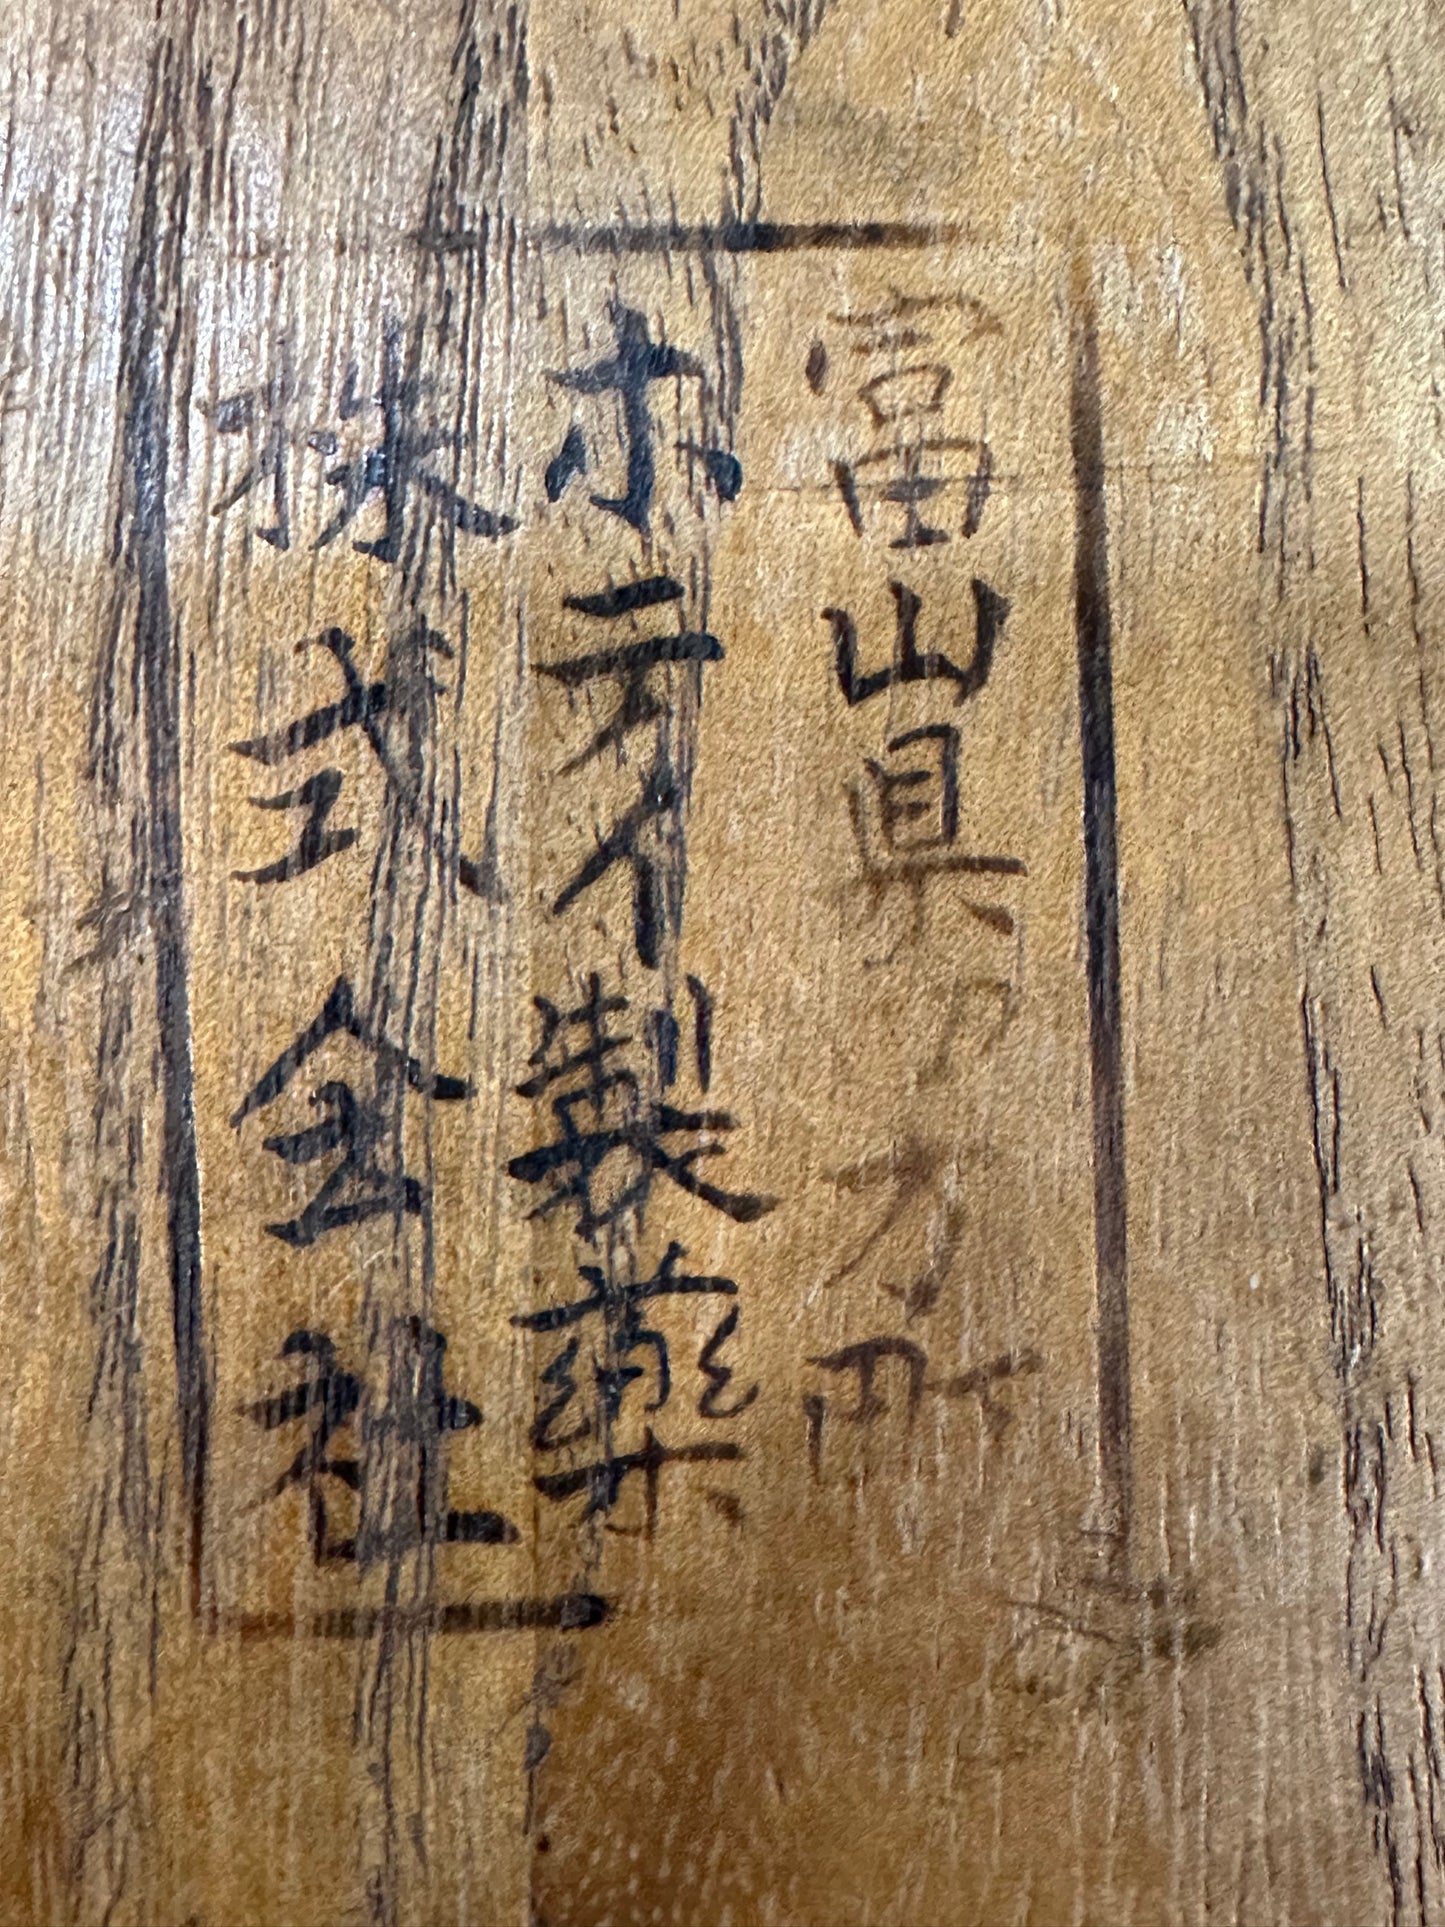 富山県 町
ホテイ製薬
株式会社